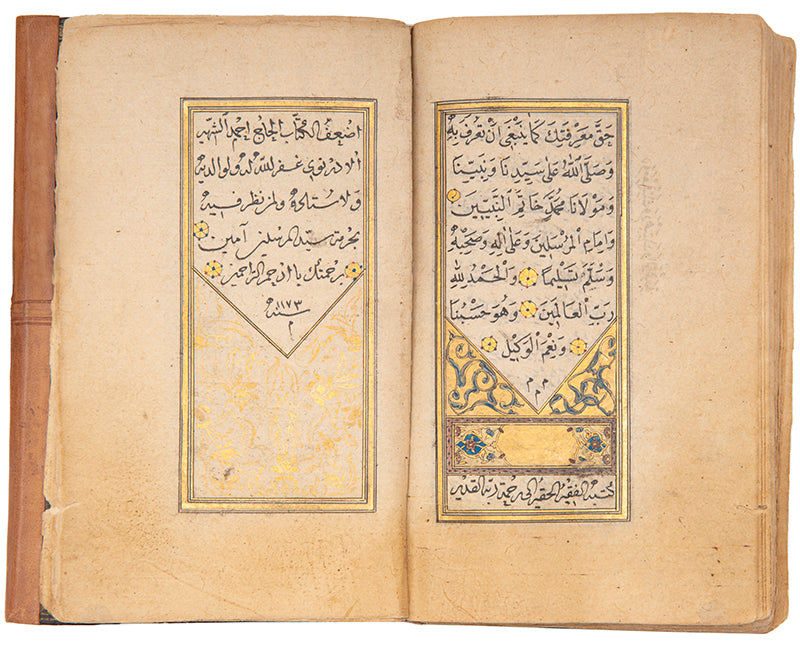 حَقَّ مَعْرِفَتِكَ كَمَا يَنْبَغِي اَنْ تُعْرَفَ بِهِ
وَصَلَّى اللهُ عَلَى سَيِّدِنَا وَنَبِيِّنَا
وَمَوْلَانَا مُحَمَّدٍ خَاتَمِ النَّبِيِّينَ
وَاِمَامِ الْمُرْسَلِينَ وَعَلَى اٰلِهِ وَصَحْبِهِ
وَسَلَّمَ تَسْلِيمًا وَالْحَمْدُ لِلّٰهِ
رَبِّ الْعَالَمِينَ وَهُوَ حَسْبُنَا
وَنِعْمَ الْوَكِيلُ
م م م
كتبه الفقير الحقير الى رحمة ربه القدير
اضعف الكتاب الحاج احمد الشهير
الادرنوى غفر الله له ولوالديه
ولاستاده ولمن نظر فيه
بحرمة سيد المرسلين آمين
برحمتك يا ارحم الراحمين
سنة ١١٧٣
م